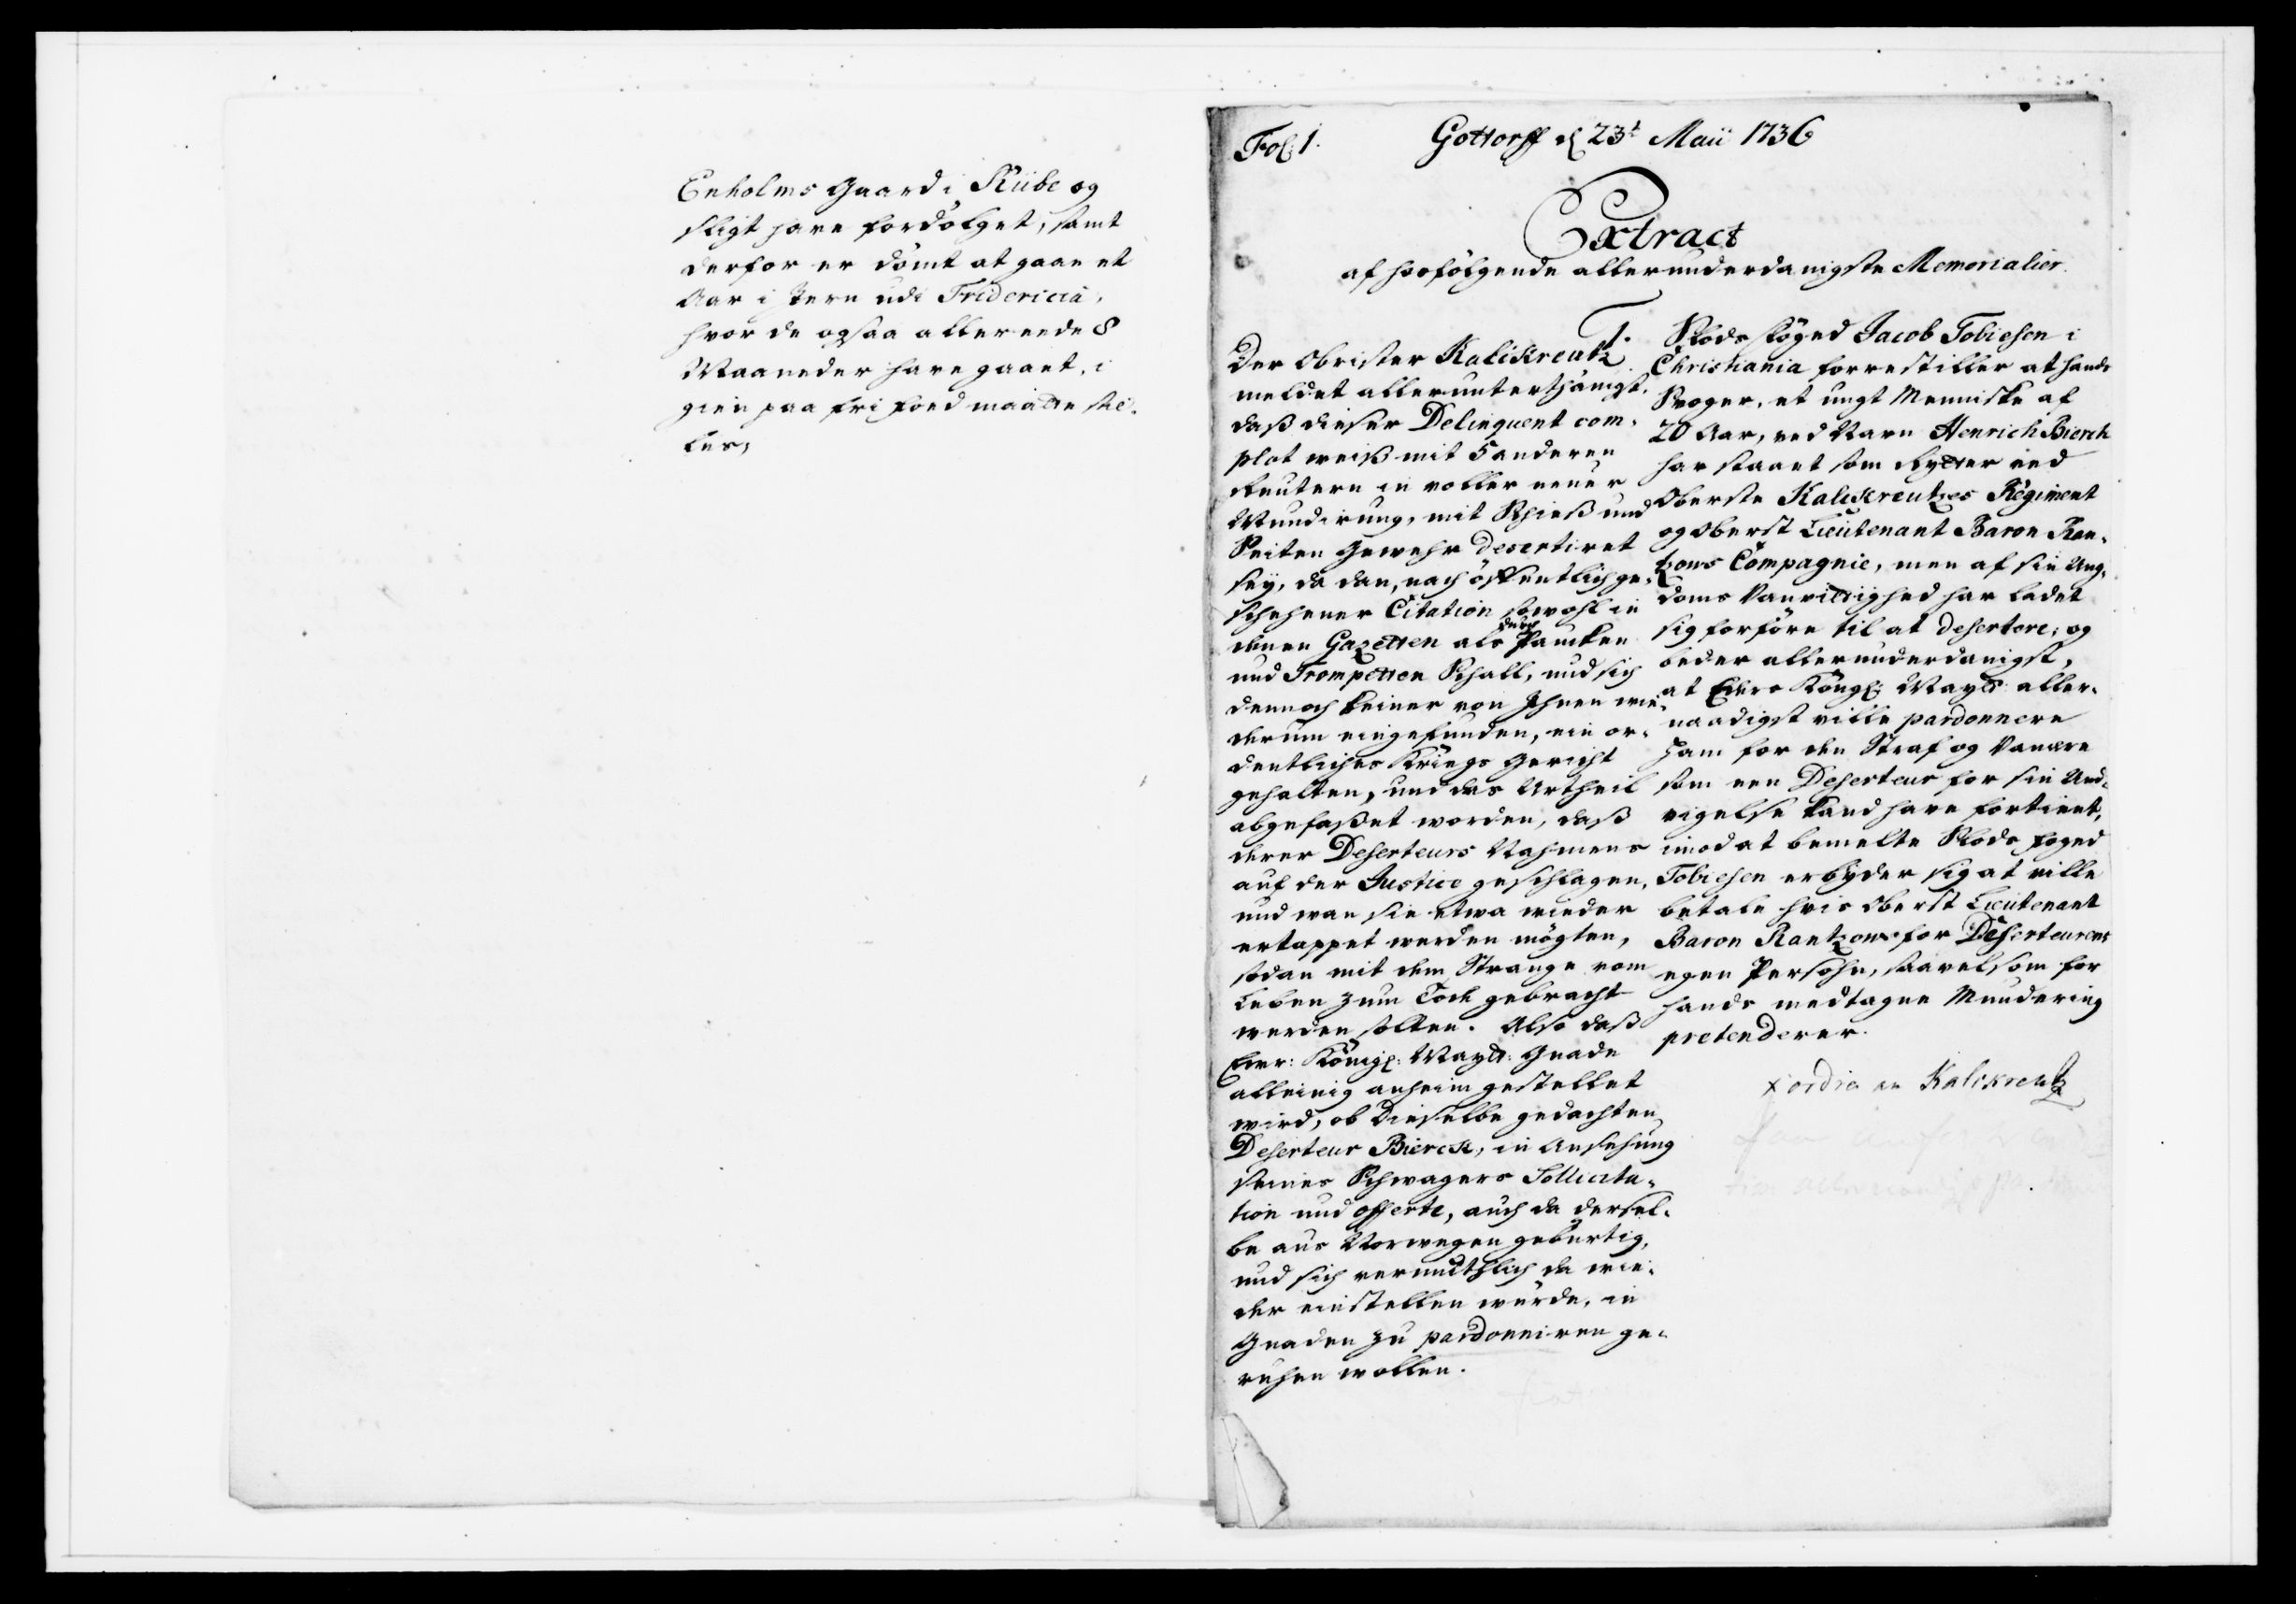 Enholms Gaard i Riibe og
sligt have fordølget, samt
derfor er dømt at gaae et
Aar i Jern udi Fridericia,
hvor de ogsaa allereede 8
Maaneder have gaaet, i
gien paa fri foed maatte stil-
les,
Fol: 1.
Gottorff d 23t Maii 1736
Extract
af hosfølgende allerunderdanigste Memorialier.
1.
Der Obrister Kalckreutz
meldet allerunterthänigst,
daß dieser Delinquent com-
plot weiß mit 5 anderen
Reutern in voller neuer
Mundirung, mit Schieß und
Seiten Gewehr desertiret
sey, da dan, nach öffentlich ge-
schehener Citation sowohl in
denen Gazetten als durch Paucken
und Trompetten Schall, und sich
dennoch keiner von Ihnen wie-
derum eingefunden, ein or-
dentliches Kriegs Gericht
gehalten, und das Urtheil
abgefaßet worden, daß
derer Deserteurs Nahmens
auf der Justice geschlagen,
und wan sie etwa wieder
ertappet werden mögten,
sodan mit dem Strange vom
Leben zum Tode gebracht
werden solten. Also daß
Ewr: Königl: Maytt: Gnade
alleinig anheim gestellet
wird, ob Dieselbe gedachten
Deserteur Bierck, in Ansehung
seines Schwagers Sollicita-
tion und offerte, auch da dersel-
be aus Norwegen gebürtig,
und sich vermuthlich da wie-
der einstellen würde, in
Gnaden zu pardonniren ge-
ruhen wollen.
Slods foged Jacob Tobiesen i
Christiania forrestiller at hands
Svoger, et ungt Menniske af
20 Aar, ved Navn Henrich Bierck
har staaet som Rytter ved
Oberste Kalckreutzes Regiment
og Oberst Lieutenant Baron Ran-
tzous Compagnie, men af sin Ung-
doms Vanvittighed har ladet
sig forføre til at desertere; og
beder allerunderdanigst,
at Eders Kongl: Mayts aller-
naadigst ville pardonnere
ham for den Straf og Vanære
som een Deserteur for sin Und-
vigelse kand have fortient,
imod at bemelte Slods foged
Tobiesen erbyder sig at ville
betale hvis Oberst Lieutenant
Baron Rantzous for Deserteurens
egen Persohn, saavelsom for
hands medtagne Mundering
pretenderer.
x ordre an Kalckreutz